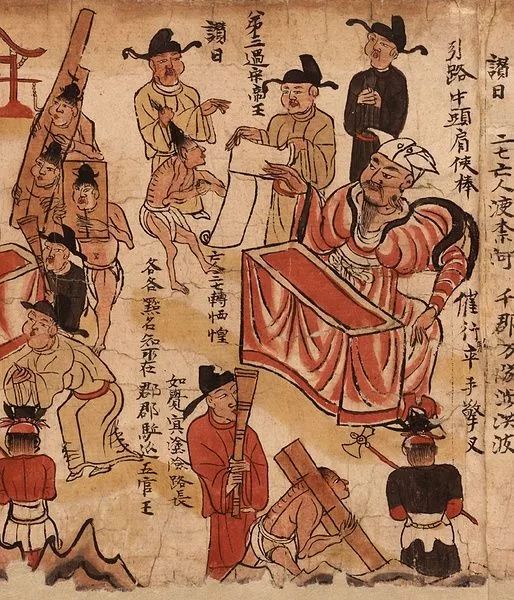 讚曰
二七亡人渡柰河 千郡万隊涉洪波
引路牛頭肩俠棒 催行卒手擎叉
第三過宋帝王
讚曰
亡人三七轉恓惶
如覺冥塗險路長
各各點名知所在 郡郡駈送五官王